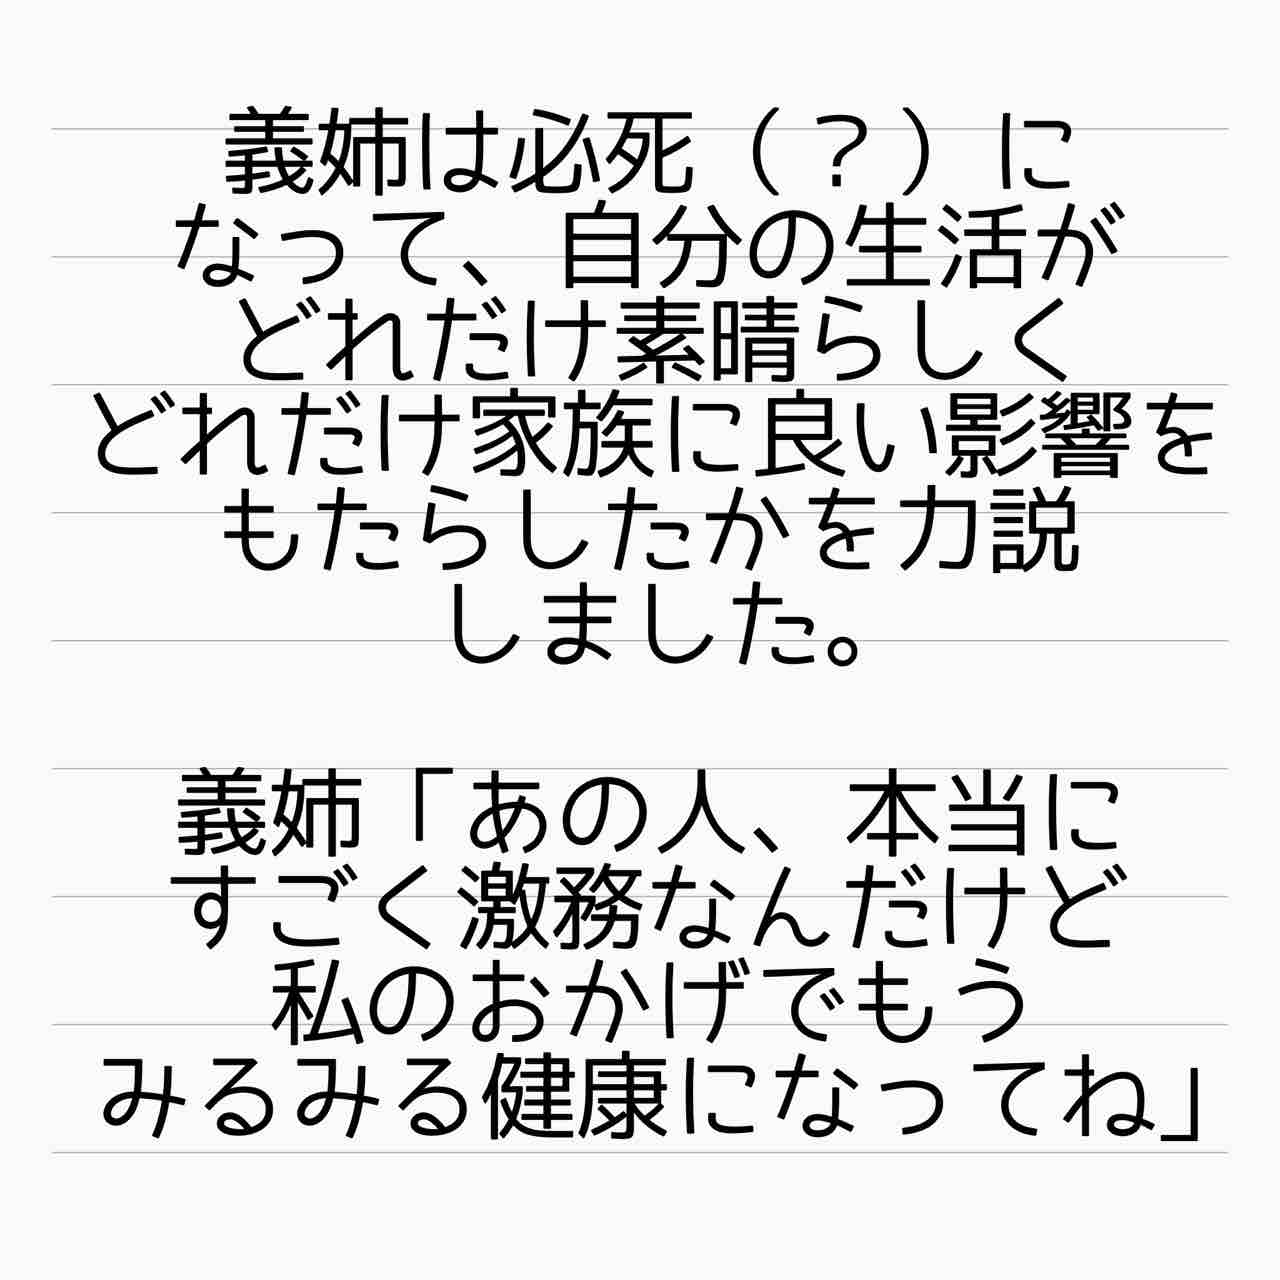 義姉は必死（？）に
なって、自分の生活が
どれだけ素晴らしく
どれだけ家族に良い影響を
もたらしたかを力説
しました。
義姉「あの人、本当に
すごく激務なんだけど
私のおかげでもう
みるみる健康になってね」